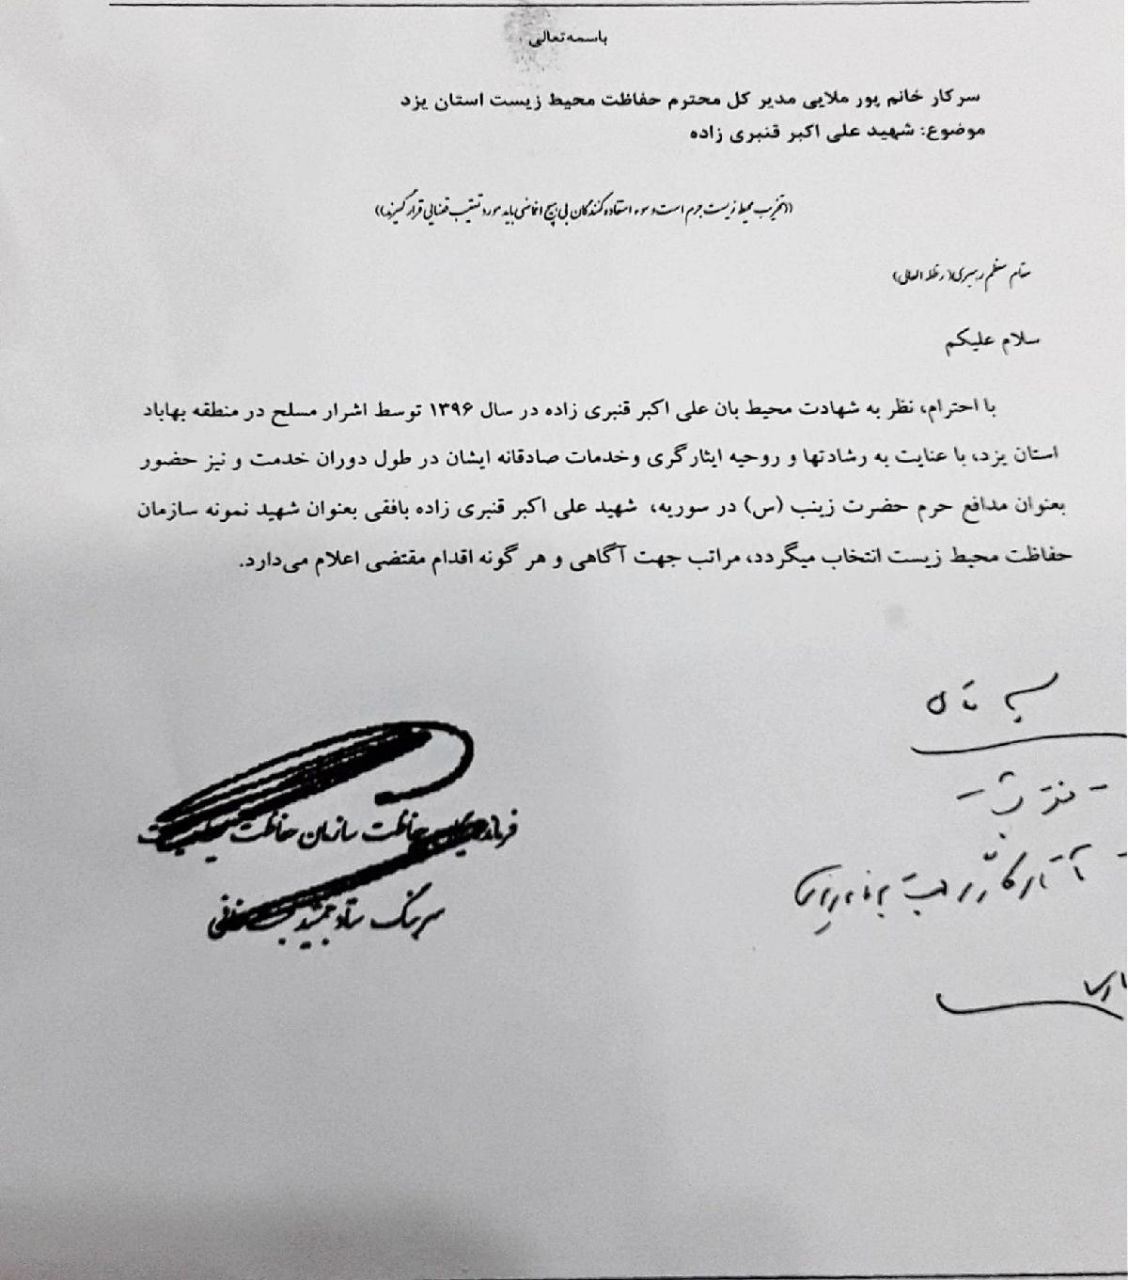 باسمه تعالی
سرکار خانم پور ملایی مدیر کل محترم حفاظت محیط زیست استان یزد
موضوع: شهید علی اکبر قنبری زاده
((تخریب محیط زیست جرم است و سوء استفاده کنندگان بی هیچ اغماضی باید مورد تعقیب قضایی قرار گیرند))
مقام معظم رهبری(مدظله العالی)
سلام علیکم
با احترام، نظر به شهادت محیط بان علی اکبر قنبری زاده در سال ۱۳۹۶ توسط اشرار مسلح در منطقه بهاباد
استان یزد، با عنایت به رشادتها و روحیه ایثارگری وخدمات صادقانه ایشان در طول دوران خدمت و نیز حضور
بعنوان مدافع حرم حضرت زینب (س) در سوریه، شهید علی اکبر قنبری زاده بافقی بعنوان شهید نمونه سازمان
حفاظت محیط زیست انتخاب میگردد، مراتب جهت آگاهی و هر گونه اقدام مقتضی اعلام می‌دارد.
فرمانده یگان حفاظت سازمان حفاظت محیط زیست
سرهنگ ستاد جمشید